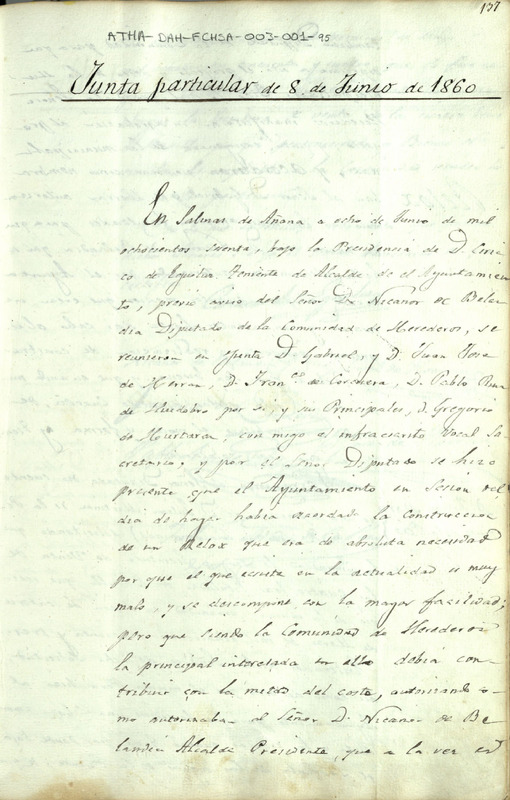 137
ATHA-DAH-FCHSA-003-001-95
Junta particular de 8 de Junio de 1860
En Salinas de Añana a ocho de Junio de mil
ochocientos sesenta, bajo la Presidencia de D. Ciria
co de Eguiluz Teniente de Alcalde de el Ayuntamien
to, previo aviso del Señor Dn Nicanor de Belan
dia Diputado de la Comunidad de Herederos, se
reunieron en Junta D. Gabriel, y D. Juan Jose
de Herran, D. Franco de Corcuera, D. Pablo
de Huidobro por si, y sus Principales, D. Gregorio
de Hurtaran, con migo el infraescrito Vocal Se
cretario; y por el Señor Diputado se hizo
presente que el Ayuntamiento en Sesion del
dia de hoy habia acordado la Construccion
de un Relox que era de absoluta necesidad
por que el que existe en la actualidad es muy
malo, y se descompone con la mayor facilidad;
pero que siendo la Comunidad de Herederos
la principal interesada en ello debia con
tribuir con la mitad del coste, autorizando co
mo autorizaba al Señor D. Nicanor de Be
landia Alcalde Presidente, que a la vez es